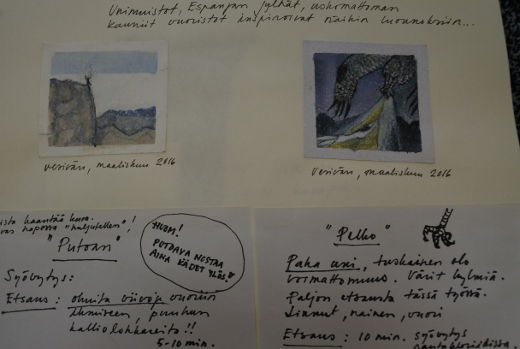 Unimuistot, Espanjan jylhät, uskomattoman
kauniit vuoristot inspiroivat näihin luonnoksiin...
vesiväri, maaliskuu 2016
vesiväri, maaliskuu 2016
kääntää kuva
hapossa "huljutellen"!
"Putoan"
HUOM!
PUTOAVA NOSTAA
AINA KÄDET YLÖS!
Syövytys:
Etsaus: ohuita viivoja vuoriin
ihmiseen, puuhun
kalliolohkareita!!
5-10 min.
"Pelko"
Paha uni, tuskainen olo
voimattomuus. Värit kylmiä.
Paljon etsausta tässä työssä.
Linnut, nainen, vuori
Etsaus: 10 min. syövytys